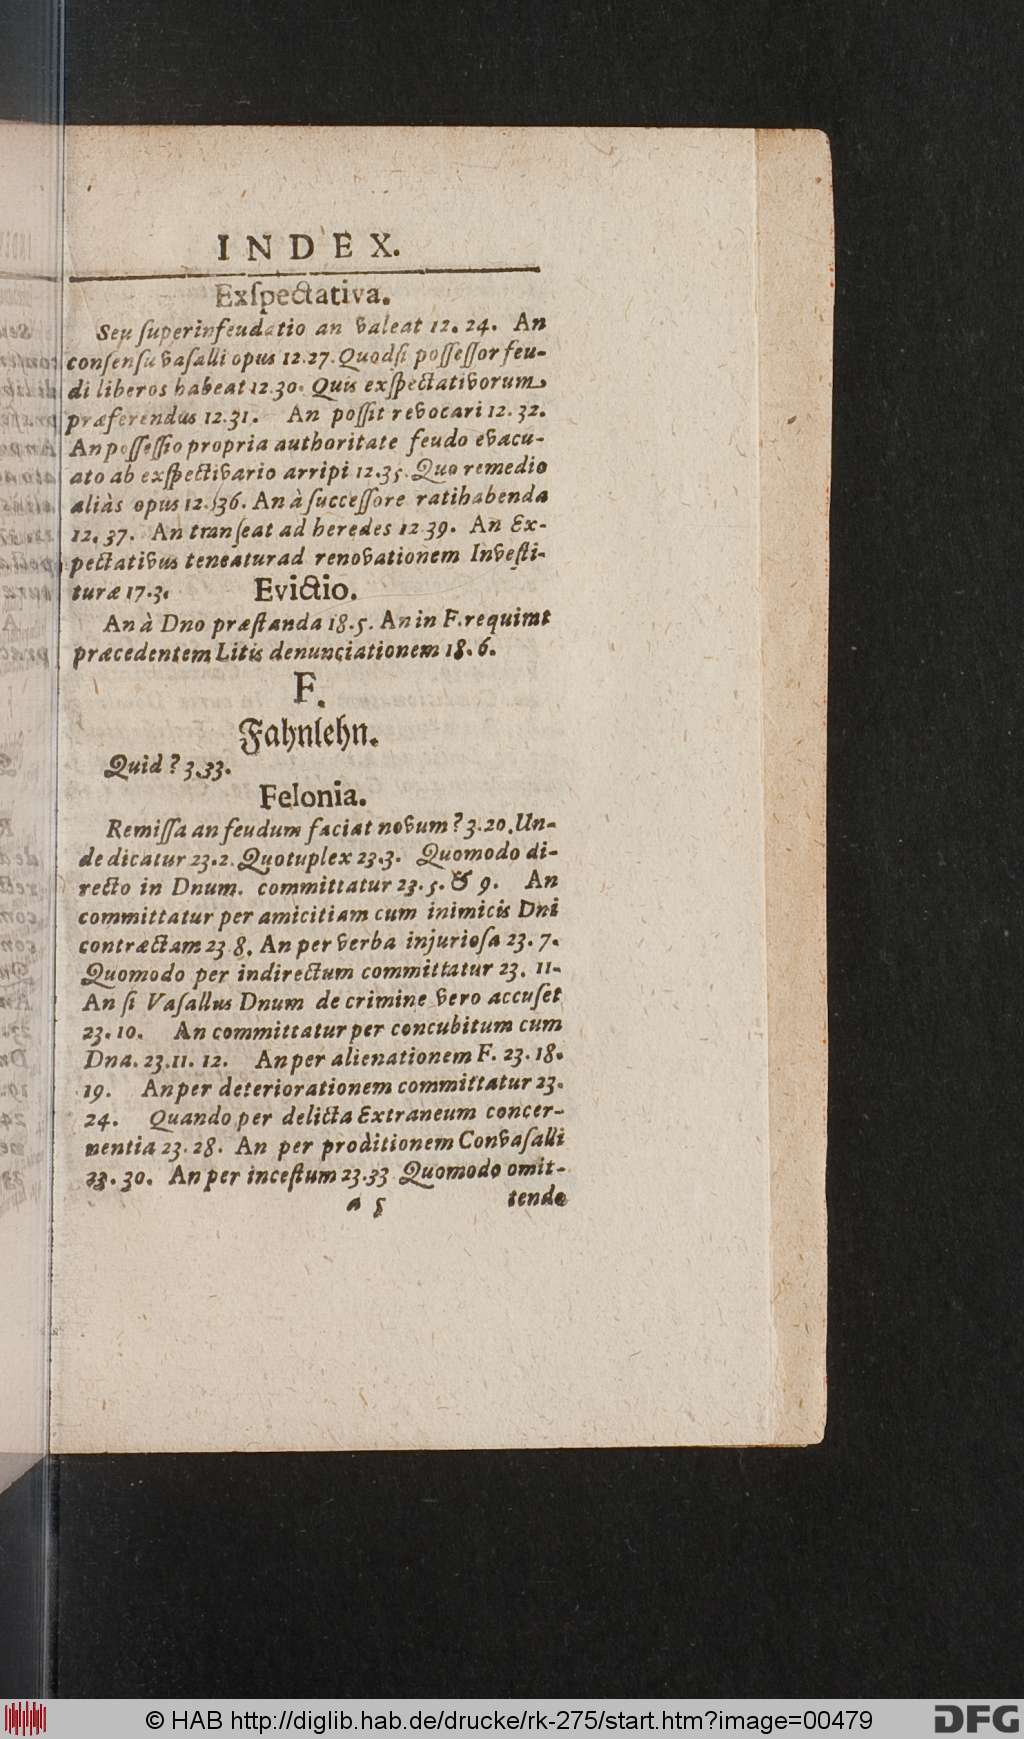 INDEX.
Exſpectativa.
Seu ſuperinfeudatio an valeat 12. 24. An
conſenſu vaſalli opus 12.27. Quodſi poſſeſſor feu-
di liberos habeat 12.30. Quis exſpectativorum
præferendus 12.31. An poſſit revocari 12. 32.
An poſſeſſio propria authoritate feudo evacu-
ato ab exſpectivario arripi 12.35. Quo remedio
aliàs opus 12. 36. An à ſucceſſore ratihabenda
12. 37. An tranſeat ad heredes 12 39. An Ex-
pectativus teneatur ad renovationem Inveſti-
turæ 17.3. Evictio.
An à Dno præſtanda 18.5. An in F. requirat
præcedentem Litis denunciationem 18. 6.
F.
Fahnlehn.
Quid? 3.33.
Felonia.
Remiſſa an feudum faciat novum? 3.20. Un-
de dicatur 23.2. Quotuplex 23.3. Quomodo di-
recto in Dnum. committatur 23. 5. & 9. An
committatur per amicitiam cum inimicis Dni
contractam 23 8. An per verba injurioſa 23. 7.
Quomodo per indirectum committatur 23. 11.
An ſi Vaſallus Dnum de crimine vero accuſet
23. 10. An committatur per concubitum cum
Dna. 23.11. 12. An per alienationem F. 23. 18.
19. An per deteriorationem committatur 23.
24. Quando per delicta Extraneum concer-
nentia 23. 28. An per proditionem Convaſalli
23. 30. An per inceſtum 23.33 Quomodo omit-
a 5 tendo
© HAB http://diglib.hab.de/drucke/rk-275/start.htm?image=00479
DFG